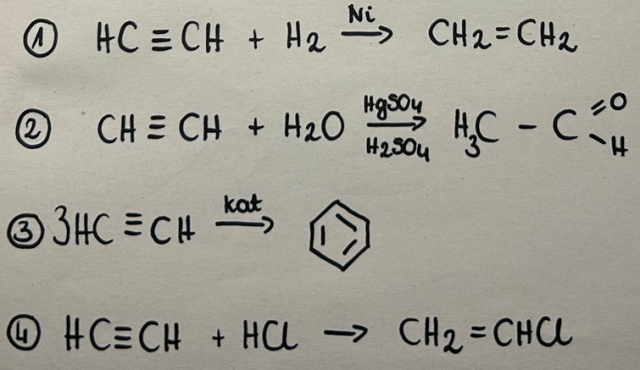 ① HC≡CH + H2 Ni→ CH2=CH2
② CH≡CH + H2O HgSO4→H2SO4 H3C-C=O-H
③ 3HC≡CH kat→
④ HC≡CH + HCl → CH2=CHCl